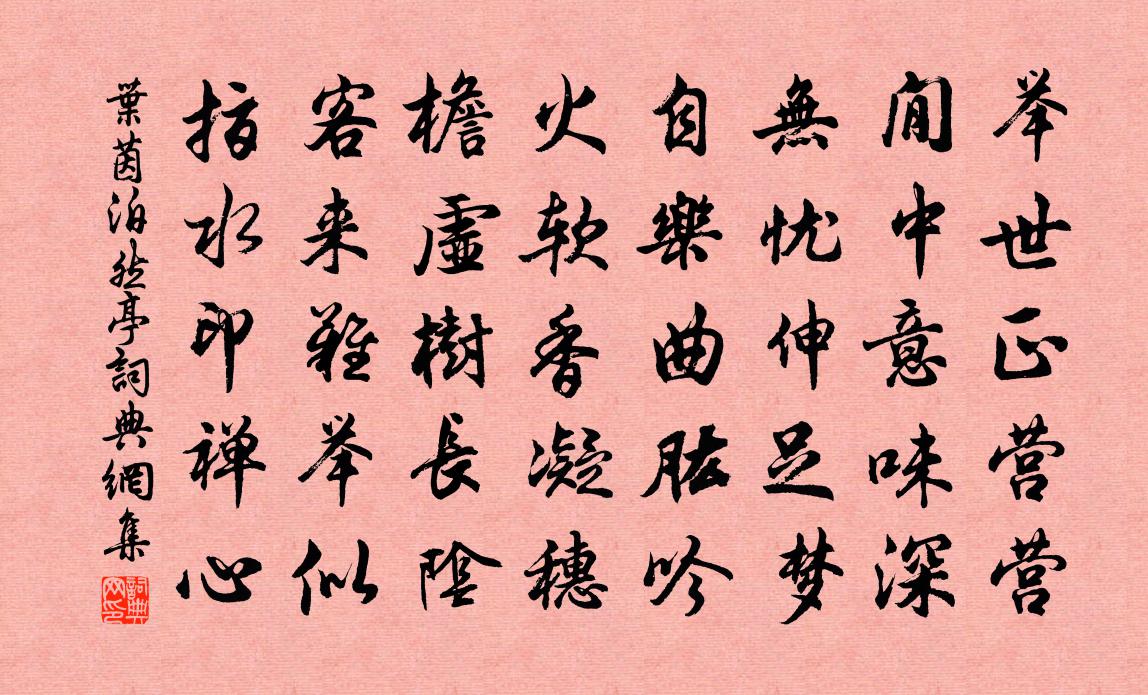 举世正营营
閒中意味深
無忧伸足梦
自樂曲肱吟
火软香凝穗
檐虚樹長陰
客来難举似
指水印禅心
葉茵泊然亭詞典網集
詞典网印